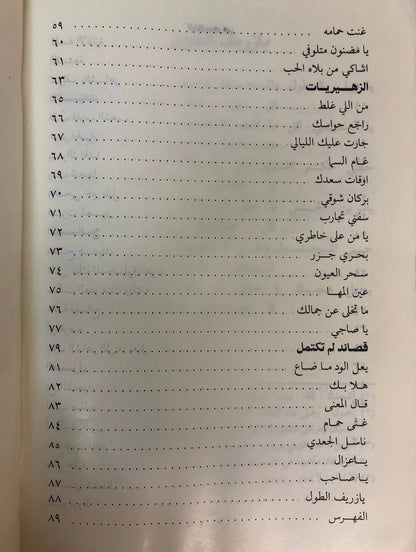 غنت حمامه ٥٩
يا مضنون متلوفي ٦٠
اشاكي من بلاه الحب ٦١
الزهيريات ٦٣
من اللي غلط ٦٥
راجع حواسك ٦٦
جارت عليك الليالي ٦٧
غام السما ٦٨
اوقات سعدك ٦٩
بركان شوقي ٧٠
سفني تجارب ٧١
يا من على خاطري ٧٢
بحري جزر ٧٣
سحر العيون ٧٤
عين المها ٧٥
ما تخلى عن جمالك ٧٦
يا صاحبي ٧٧
قصائد لم تكتمل ٧٩
يعل الود ما ضاع ٨١
هلا بك ٨٢
قال المعنى ٨٣
غنى حمام ٨٤
ناسل الجعدي ٨٥
يا عزال ٨٦
يا صاحب ٨٧
يازريف الطول ٨٨
الفهرس ٨٩